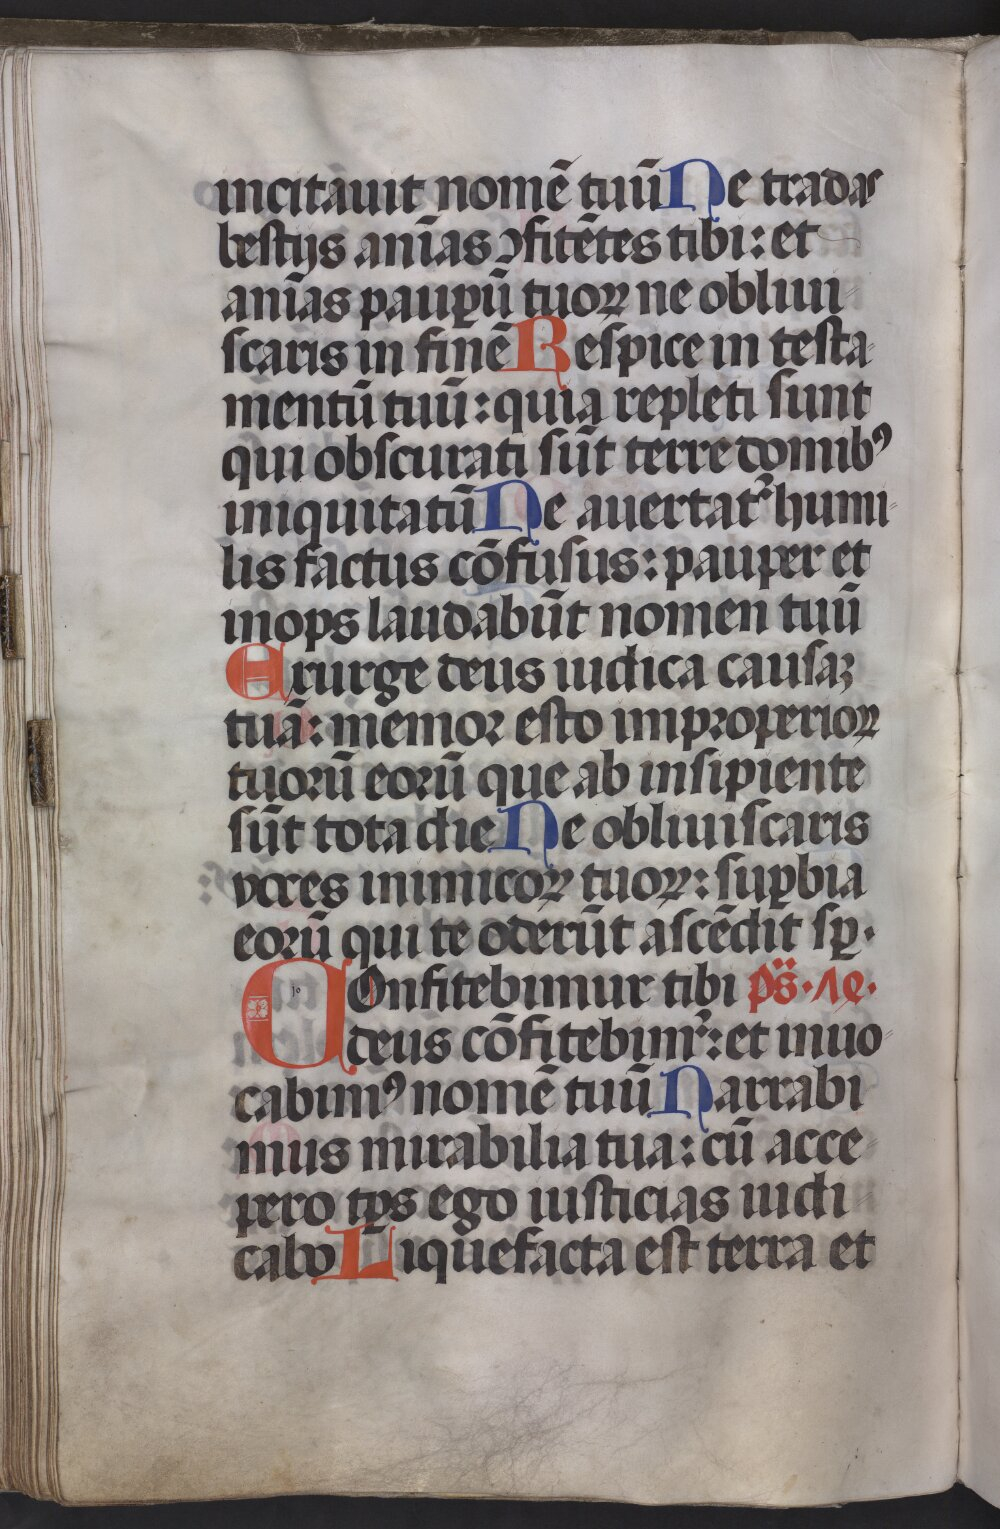 incitauit nomē tuū Ne tradas
bestijs anīas ↄfitētes tibi: et
anīas pauꝑū tuoꝝ ne obliui-
scaris in finē Respice in testa-
mentū tuū: quia repleti sunt
qui obscurati sūt terre domibꝰ
iniquitatū Ne auertat᷑ humi-
lis factus cōfusus: pauper et
inops laudabūt nomen tuū
Exurge deus iudica causaꝫ
tuā: memor esto improperioꝝ
tuorū eorū que ab insipiente
sūt tota die Ne obliuiscaris
voces inimicoꝝ tuoꝝ: suꝑbia
eorū qui te oderūt ascēdit sꝑ.
Confitebimur tibi ps̄.
deus cōfitebim᷑: et inuo-
cabimꝰ nomē tuū Narrabi
mus mirabilia tua: cū acce-
pero tp̄s ego iusticias iudi-
cabo Liquefacta est terra et